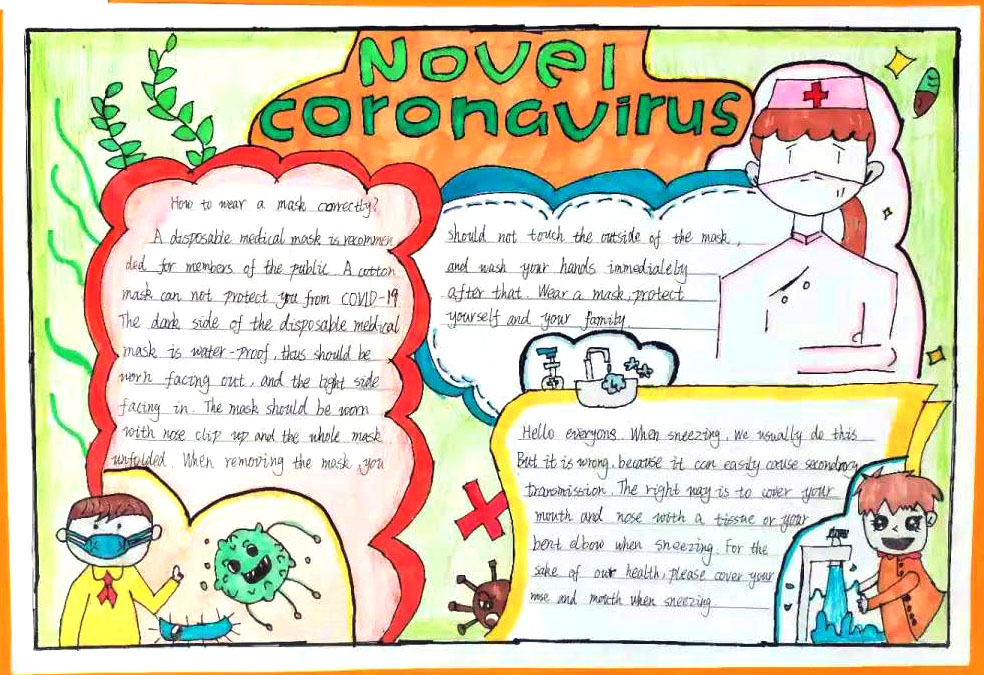 Novel
coronavirus
How to wear a mask correctly?
A disposable medical mask is recommen
ded for members of the public. A cotton
mask can not protect you from COVID-19
The dark side of the disposable medical
mask is water-proof, thus should be
worn facing out, and the light side
facing in. The mask should be worn
with nose clip up and the whole mask
unfolded. When removing the mask, you
should not touch the outside of the mask,
and wash your hands immedialely
after that. Wear a mask, protect
yourself and your family
Hello everyone. When sneezing, we usually do this
But it is wrong, because it can easily cause secondary
transmission. The right way is to cover your
mouth and nose with a tissue or your
bent elbow when sneezing. For the
sake of our health, please cover your
nose and mouth when sneezing.